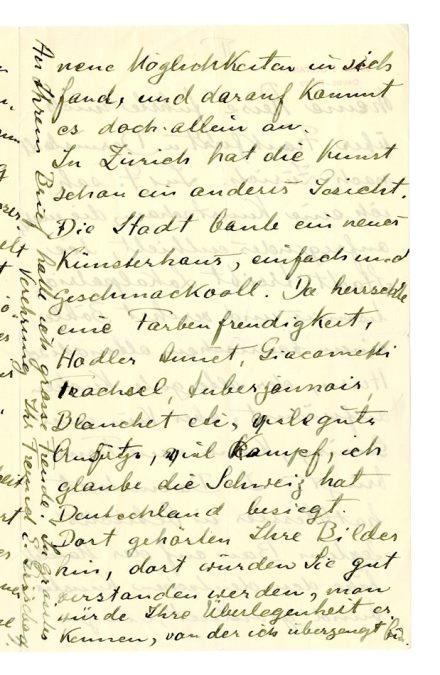 neue Möglichkeiten in sich
fand, und darauf kommt
es doch allein an.
In Zürich hat die Kunst
schon ein anderes Gesicht.
Die Stadt baute ein neues
Künsterhaus, einfach und
Geschmackvoll. Da herrschte
eine Farbenfreudigkeit,
Hodler Amiet, Giacometti
Trachsel, Auberjonnois,
Blanchet etc, viele gute
Ansätze, viel Kampf, ich
glaube die Schweiz hat
Deutschland besiegt.
Dort gehörten Ihre Bilder
hin, dort würden Sie gut
verstanden werden, man
würde Ihre Überlegenheit er
kennen, von der ich überzeugt bin.
An Ihrem Brief hatte ich grosse Freude. In grosser
Verehrung Ihr Freund E.